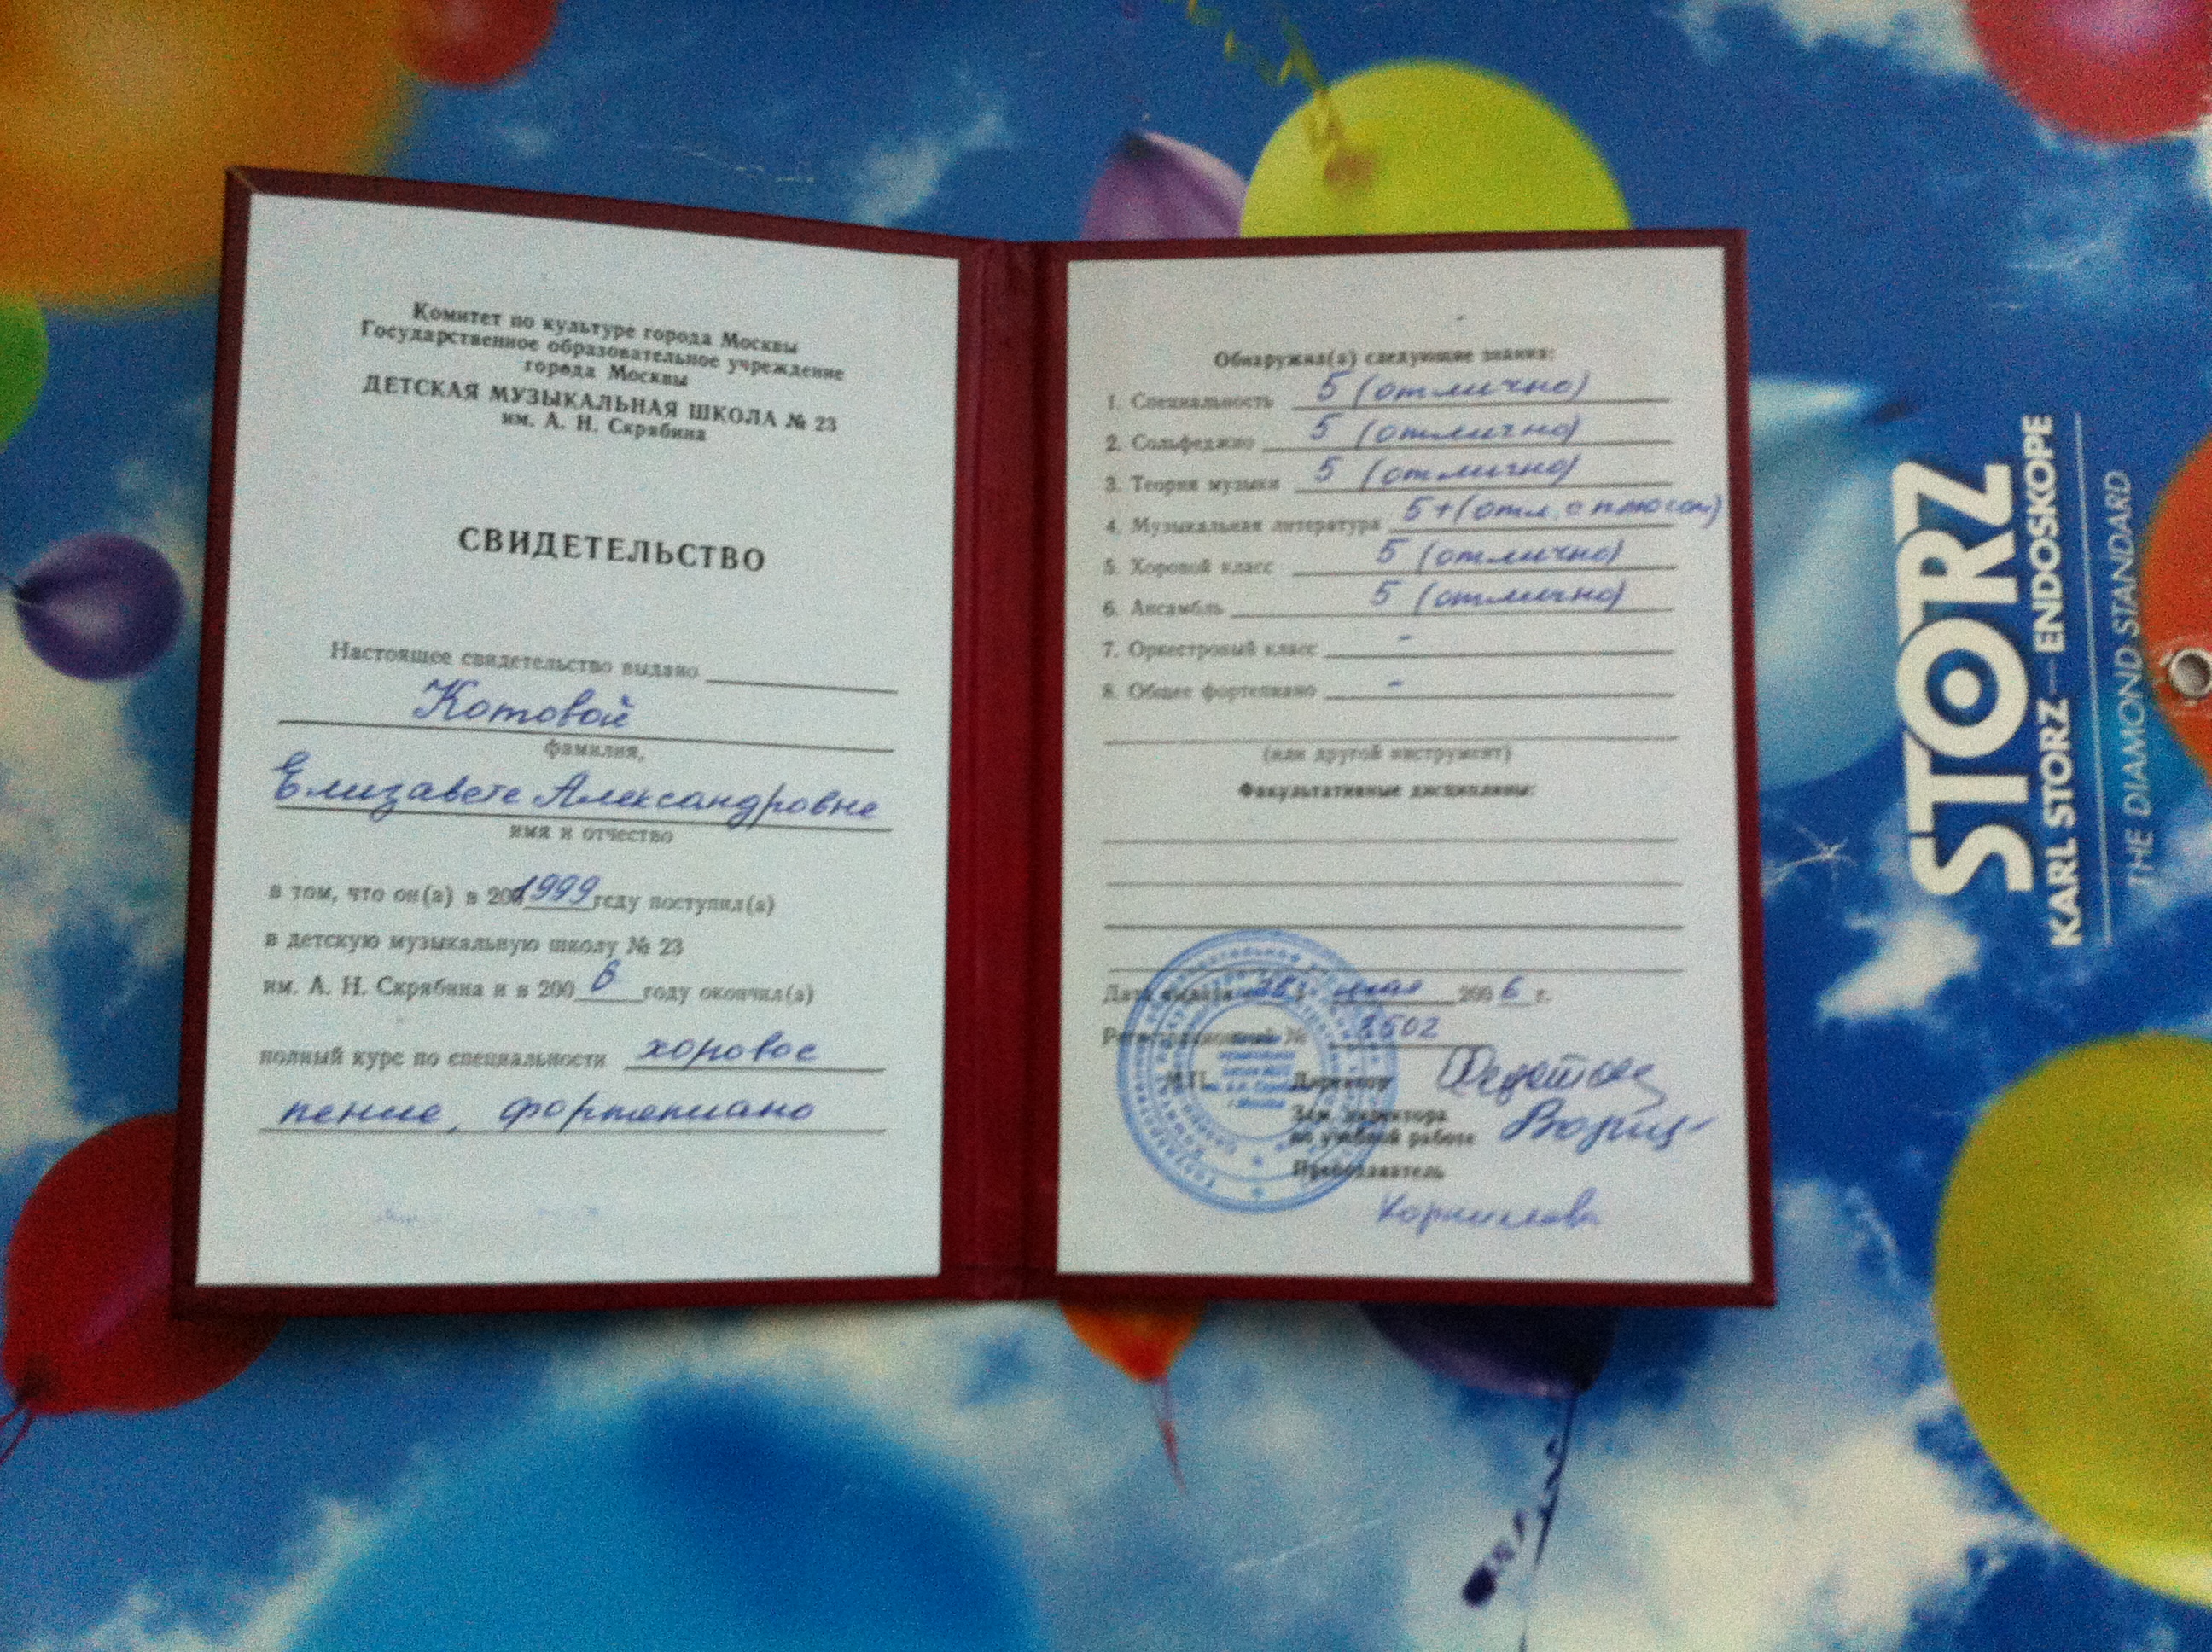 Комитет по культуре города Москвы
Государственное образовательное учреждение
города Москвы
ДЕТСКАЯ МУЗЫКАЛЬНАЯ ШКОЛА № 23
им. А. Н. Скрябина
СВИДЕТЕЛЬСТВО
Настоящее свидетельство выдано
Котовой
фамилия,
Елизавете Александровне
имя и отчество
в том, что он(а) в 200 1999 году поступил(а)
в детскую музыкальную школу № 23
им. А. Н. Скрябина и в 200 6 году окончил(а)
полный курс по специальности хоровое
пение, фортепиано
Обнаружил(а) следующие знания:
1. Специальность 5 (отлично)
2. Сольфеджио 5 (отлично)
3. Теория музыки 5 (отлично)
4. Музыкальная литература 5+ (отл. с плюсом)
5. Хоровой класс 5 (отлично)
6. Ансамбль 5 (отлично)
7. Оркестровый класс -
8. Общее фортепиано -
(или другой инструмент)
Факультативные дисциплины:
Дата выдачи мая 200 6 г.
Регистрационный №
М.П. Директор
Зам. директора
по учебной работе
Преподаватель
Корнилова
STORZ
KARL STORZ—ENDOSKOPE
THE DIAMOND STANDARD